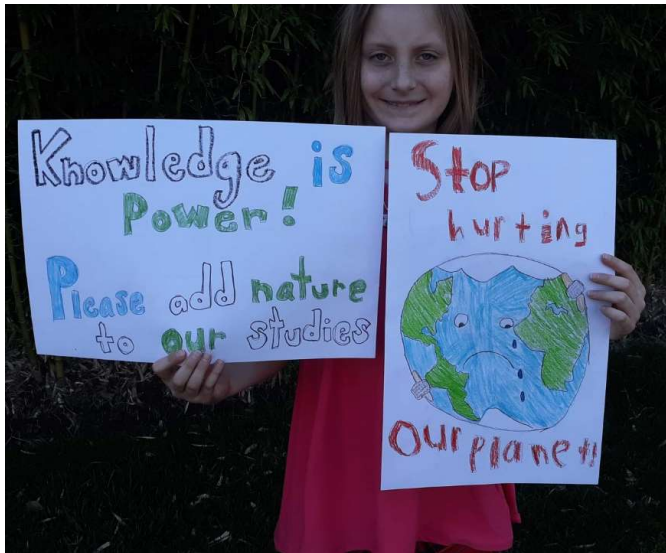 Knowledge is
Power!
Please add nature
to our studies
Stop
hurting
Our planet!